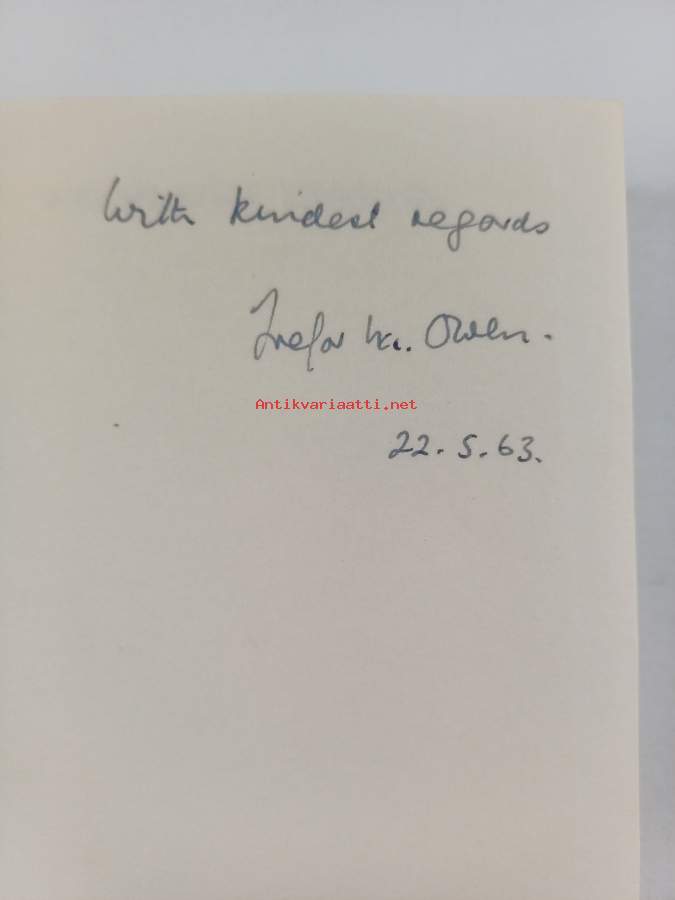 With kindest regards
Trefor M. Owen.
Antikvariaatti.net
22.5.63.